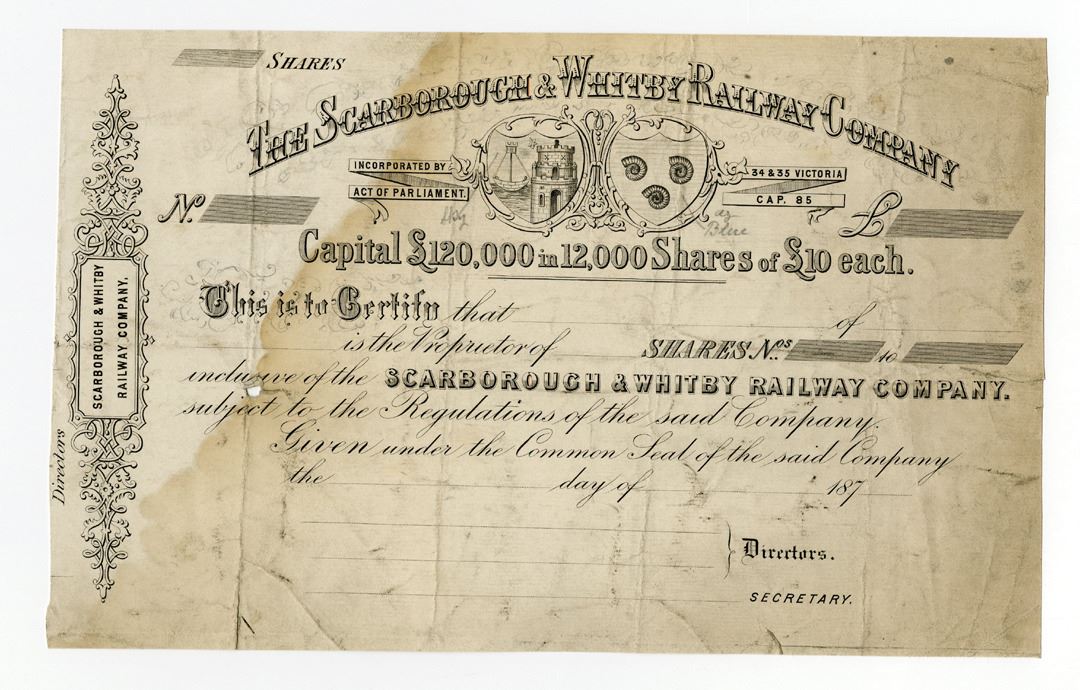 SHARES
THE SCARBOROUGH & WHITBY RAILWAY COMPANY
INCORPORATED BY
ACT OF PARLIAMENT.
34 & 35 VICTORIA
CAP. 85
No.
£
Blue
Capital £120,000 in 12,000 Shares of £10 each.
This is to Certify that of
is the Proprietor of SHARES Nos. to
inclusive of the SCARBOROUGH & WHITBY RAILWAY COMPANY.
subject to the Regulations of the said Company.
Given under the Common Seal of the said Company
the day of 187
Directors.
SECRETARY.
SCARBOROUGH & WHITBY
RAILWAY COMPANY.
Directors